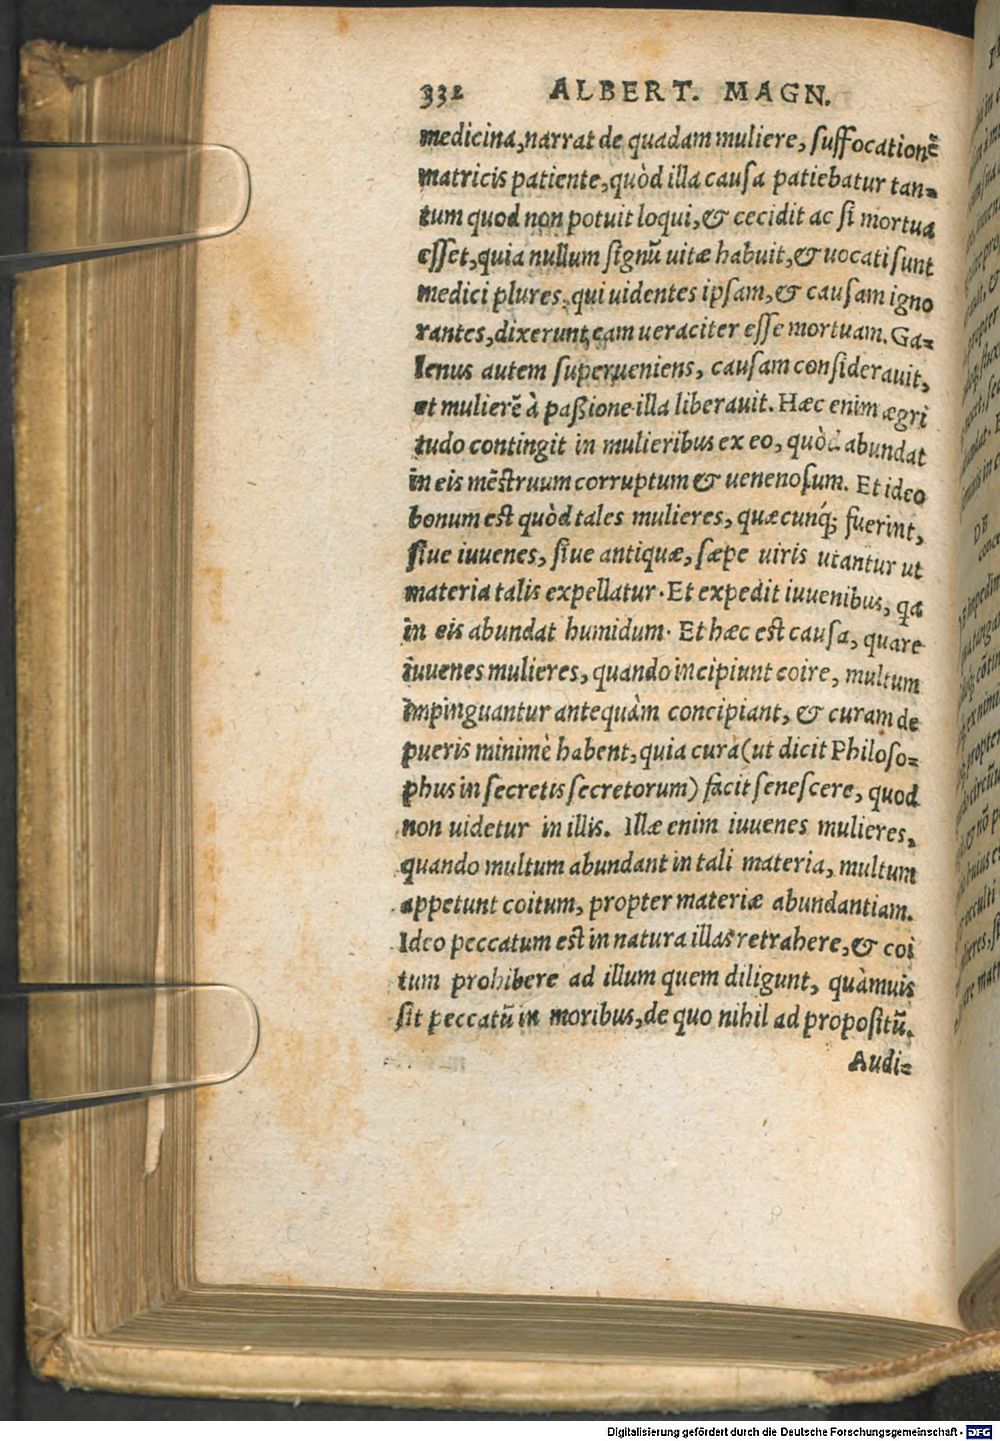 332 ALBERT. MAGN.
medicina, narrat de quadam muliere, suffocationẽ
matricis patiente, quòd illa causa patiebatur tan=
tum quod non potuit loqui, & cecidit ac si mortua
esset, quia nullum signũ uitæ habuit, & uocati sunt
medici plures, qui uidentes ipsam, & causam igno
rantes, dixerunt eam ueraciter esse mortuam. Ga=
lenus autem superueniens, causam considerauit,
et mulierẽ à paßione illa liberauit. Hæc enim ægri
tudo contingit in mulieribus ex eo, quòd abundat
in eis mẽstruum corruptum & uenenosum. Et ideo
bonum est quòd tales mulieres, quæcunq́; fuerint,
siue iuuenes, siue antiquæ, sæpe uiris utantur ut
materia talis expellatur. Et expedit iuuenibus, qa
in eis abundat humidum. Et hæc est causa, quare
iuuenes mulieres, quando incipiunt coire, multum
impinguantur antequàm concipiant, & curam de
pueris minimè habent, quia cura (ut dicit Philoso=
phus in secretis secretorum) facit senescere, quod
non uidetur in illis. Illæ enim iuuenes mulieres,
quando multum abundant in tali materia, multum
appetunt coitum, propter materiæ abundantiam.
Ideo peccatum est in natura illas retrahere, & coi
tum prohibere ad illum quem diligunt, quàmuis
sit peccatũ in moribus, de quo nihil ad propositũ.
Audi=
DE
Digitalisierung gefördert durch die Deutsche Forschungsgemeinschaft - DFG